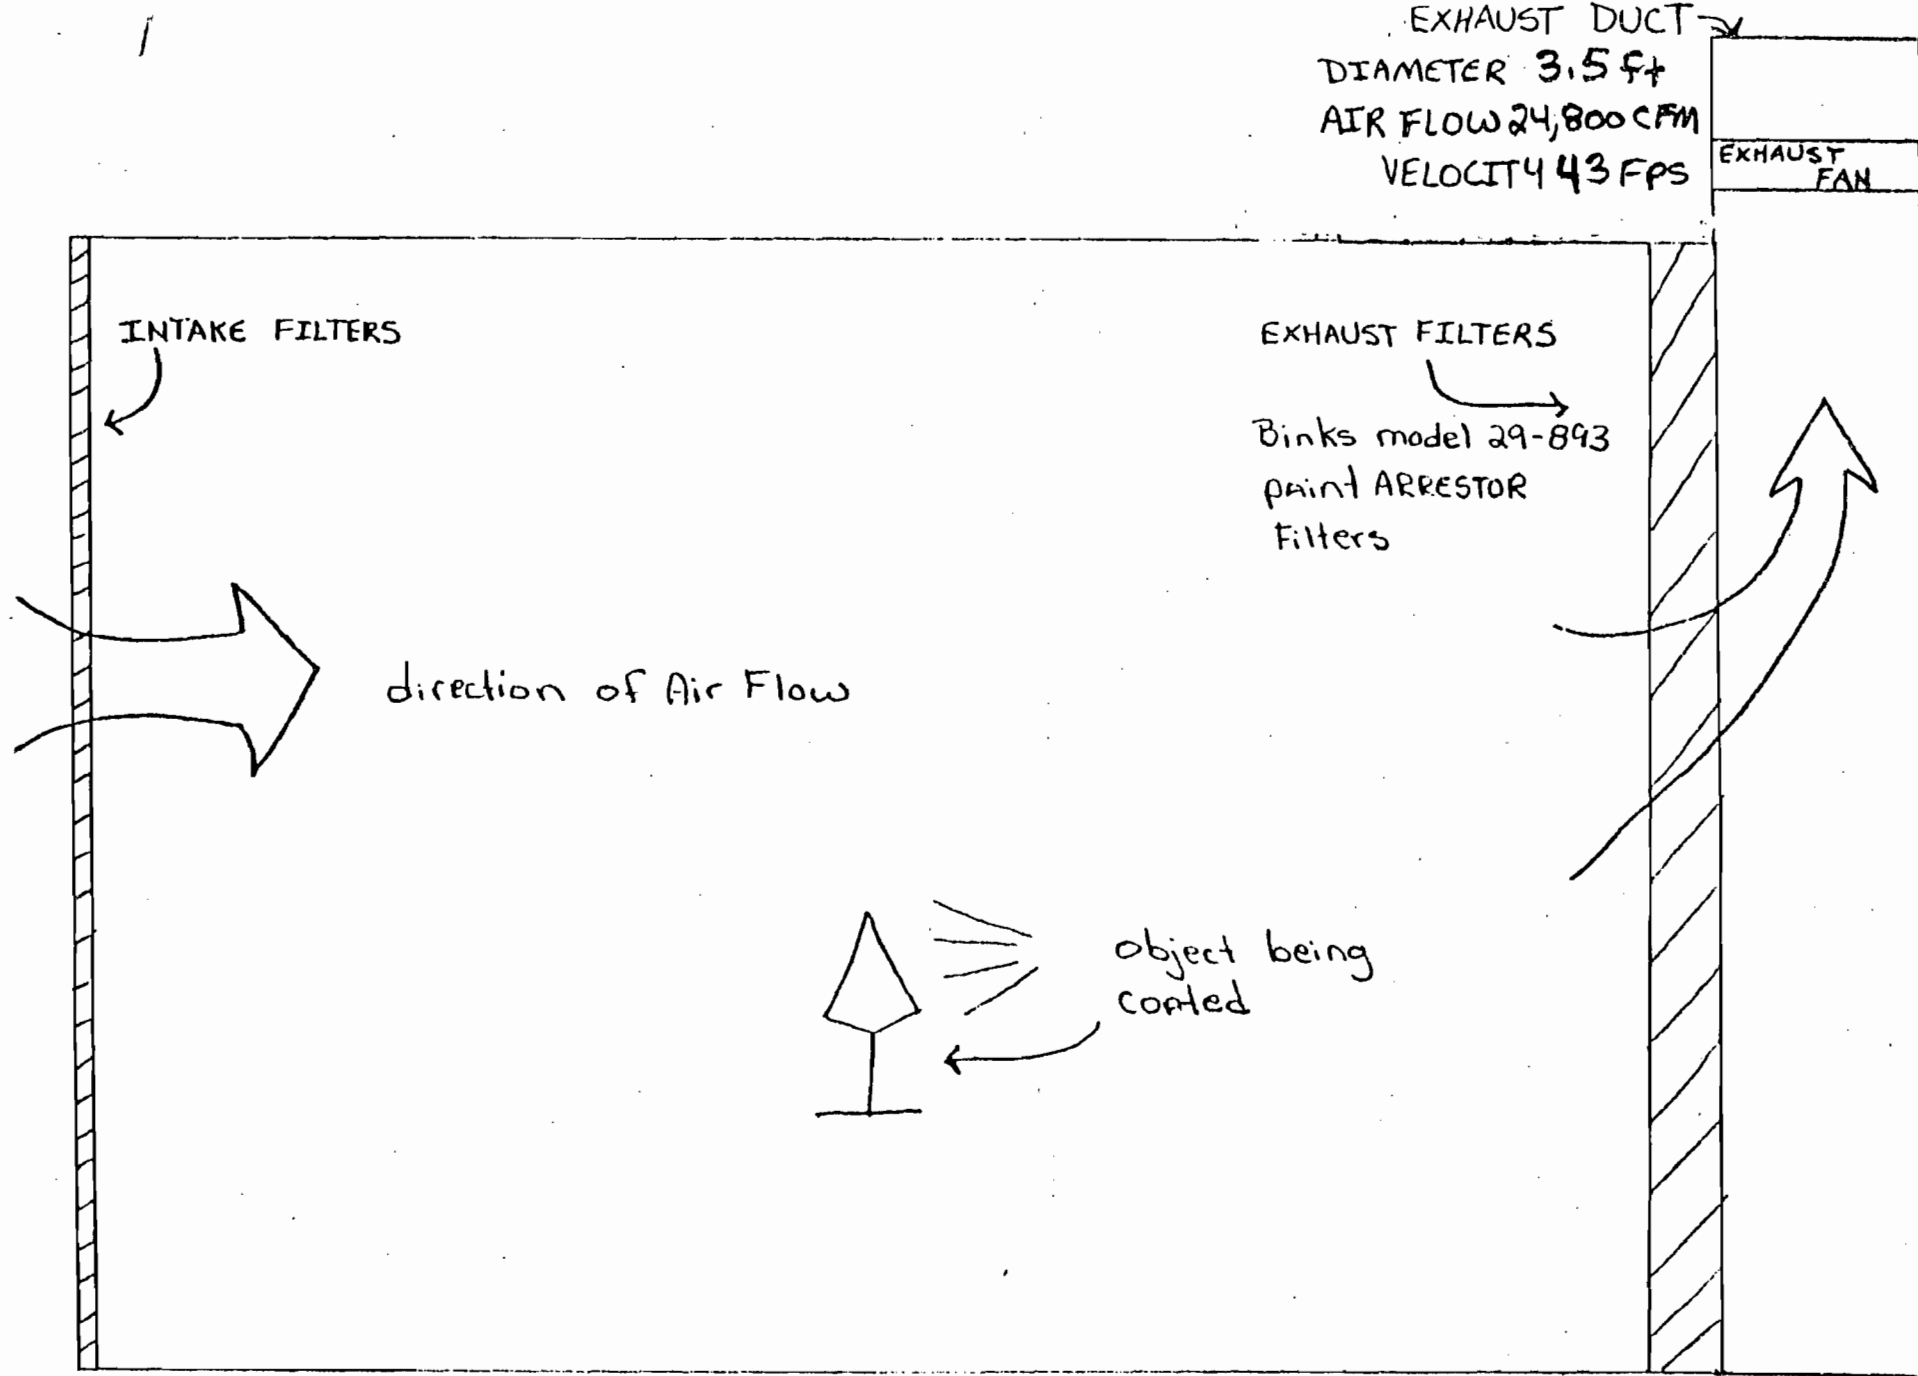 /
EXHAUST DUCT
DIAMETER 3.5 ft
AIR FLOW 24,800 CFM
VELOCITY 43 FPS
EXHAUST
FAN
INTAKE FILTERS
EXHAUST FILTERS
Binks model 29-893
paint ARRESTOR
Filters
direction of Air Flow
object being
coated